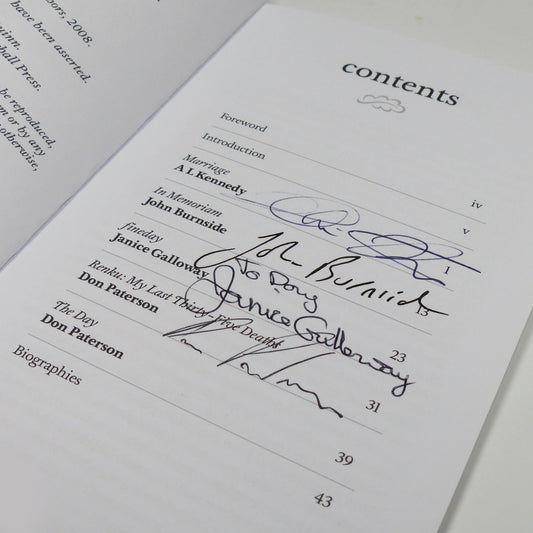 bors, 2008.
have been asserted.
uinn.
hall Press.
be reproduced,
m or by any
otherwise,
contents
Foreword iv
Introduction v
Marriage
A L Kennedy 1
In Memoriam
John Burnside 13
John Burnside
fineday
Janice Galloway 23
To Doug
Janice Galloway
Renku: My Last Thirty-Five Deaths
Don Paterson 31
The Day
Don Paterson 39
Biographies 43